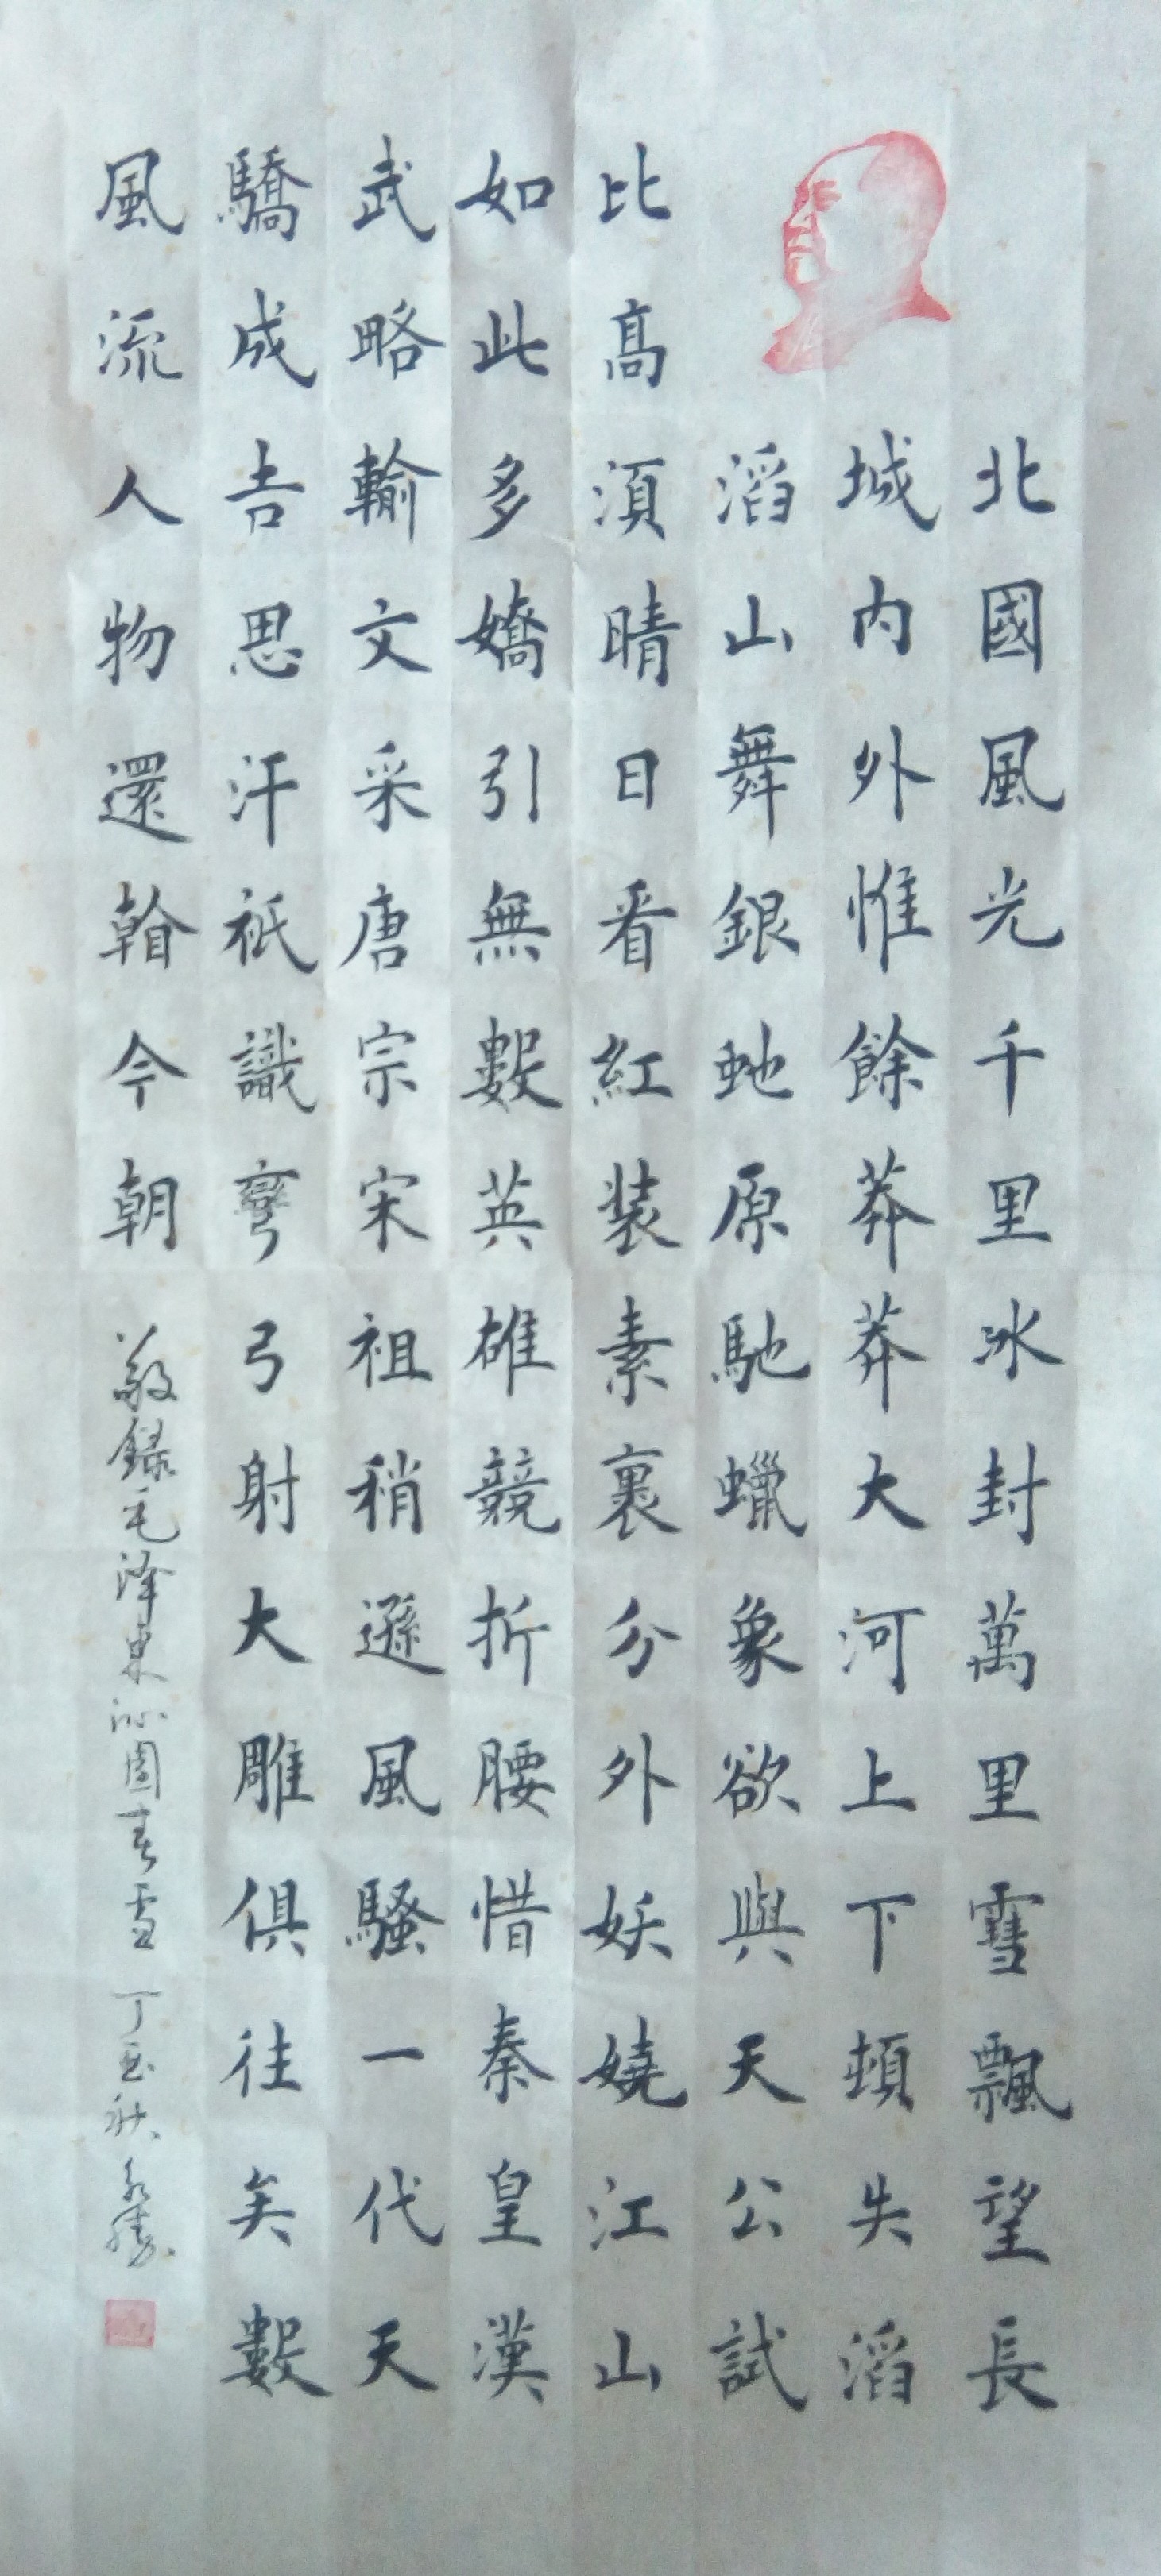 北國風光千里冰封萬里雪飄望長
城内外惟餘莽莽大河上下頓失滔
滔山舞銀虵原馳蠟象欲與天公試
比高須晴日看紅装素裹分外妖嬈江山
如此多嬌引無數英雄競折腰惜秦皇漢
武略輸文采唐宗宋祖稍遜風騷一代天
驕成吉思汗衹識彎弓射大雕俱往矣數
風流人物還看今朝
敬録毛泽東沁園春雪 丁酉秋